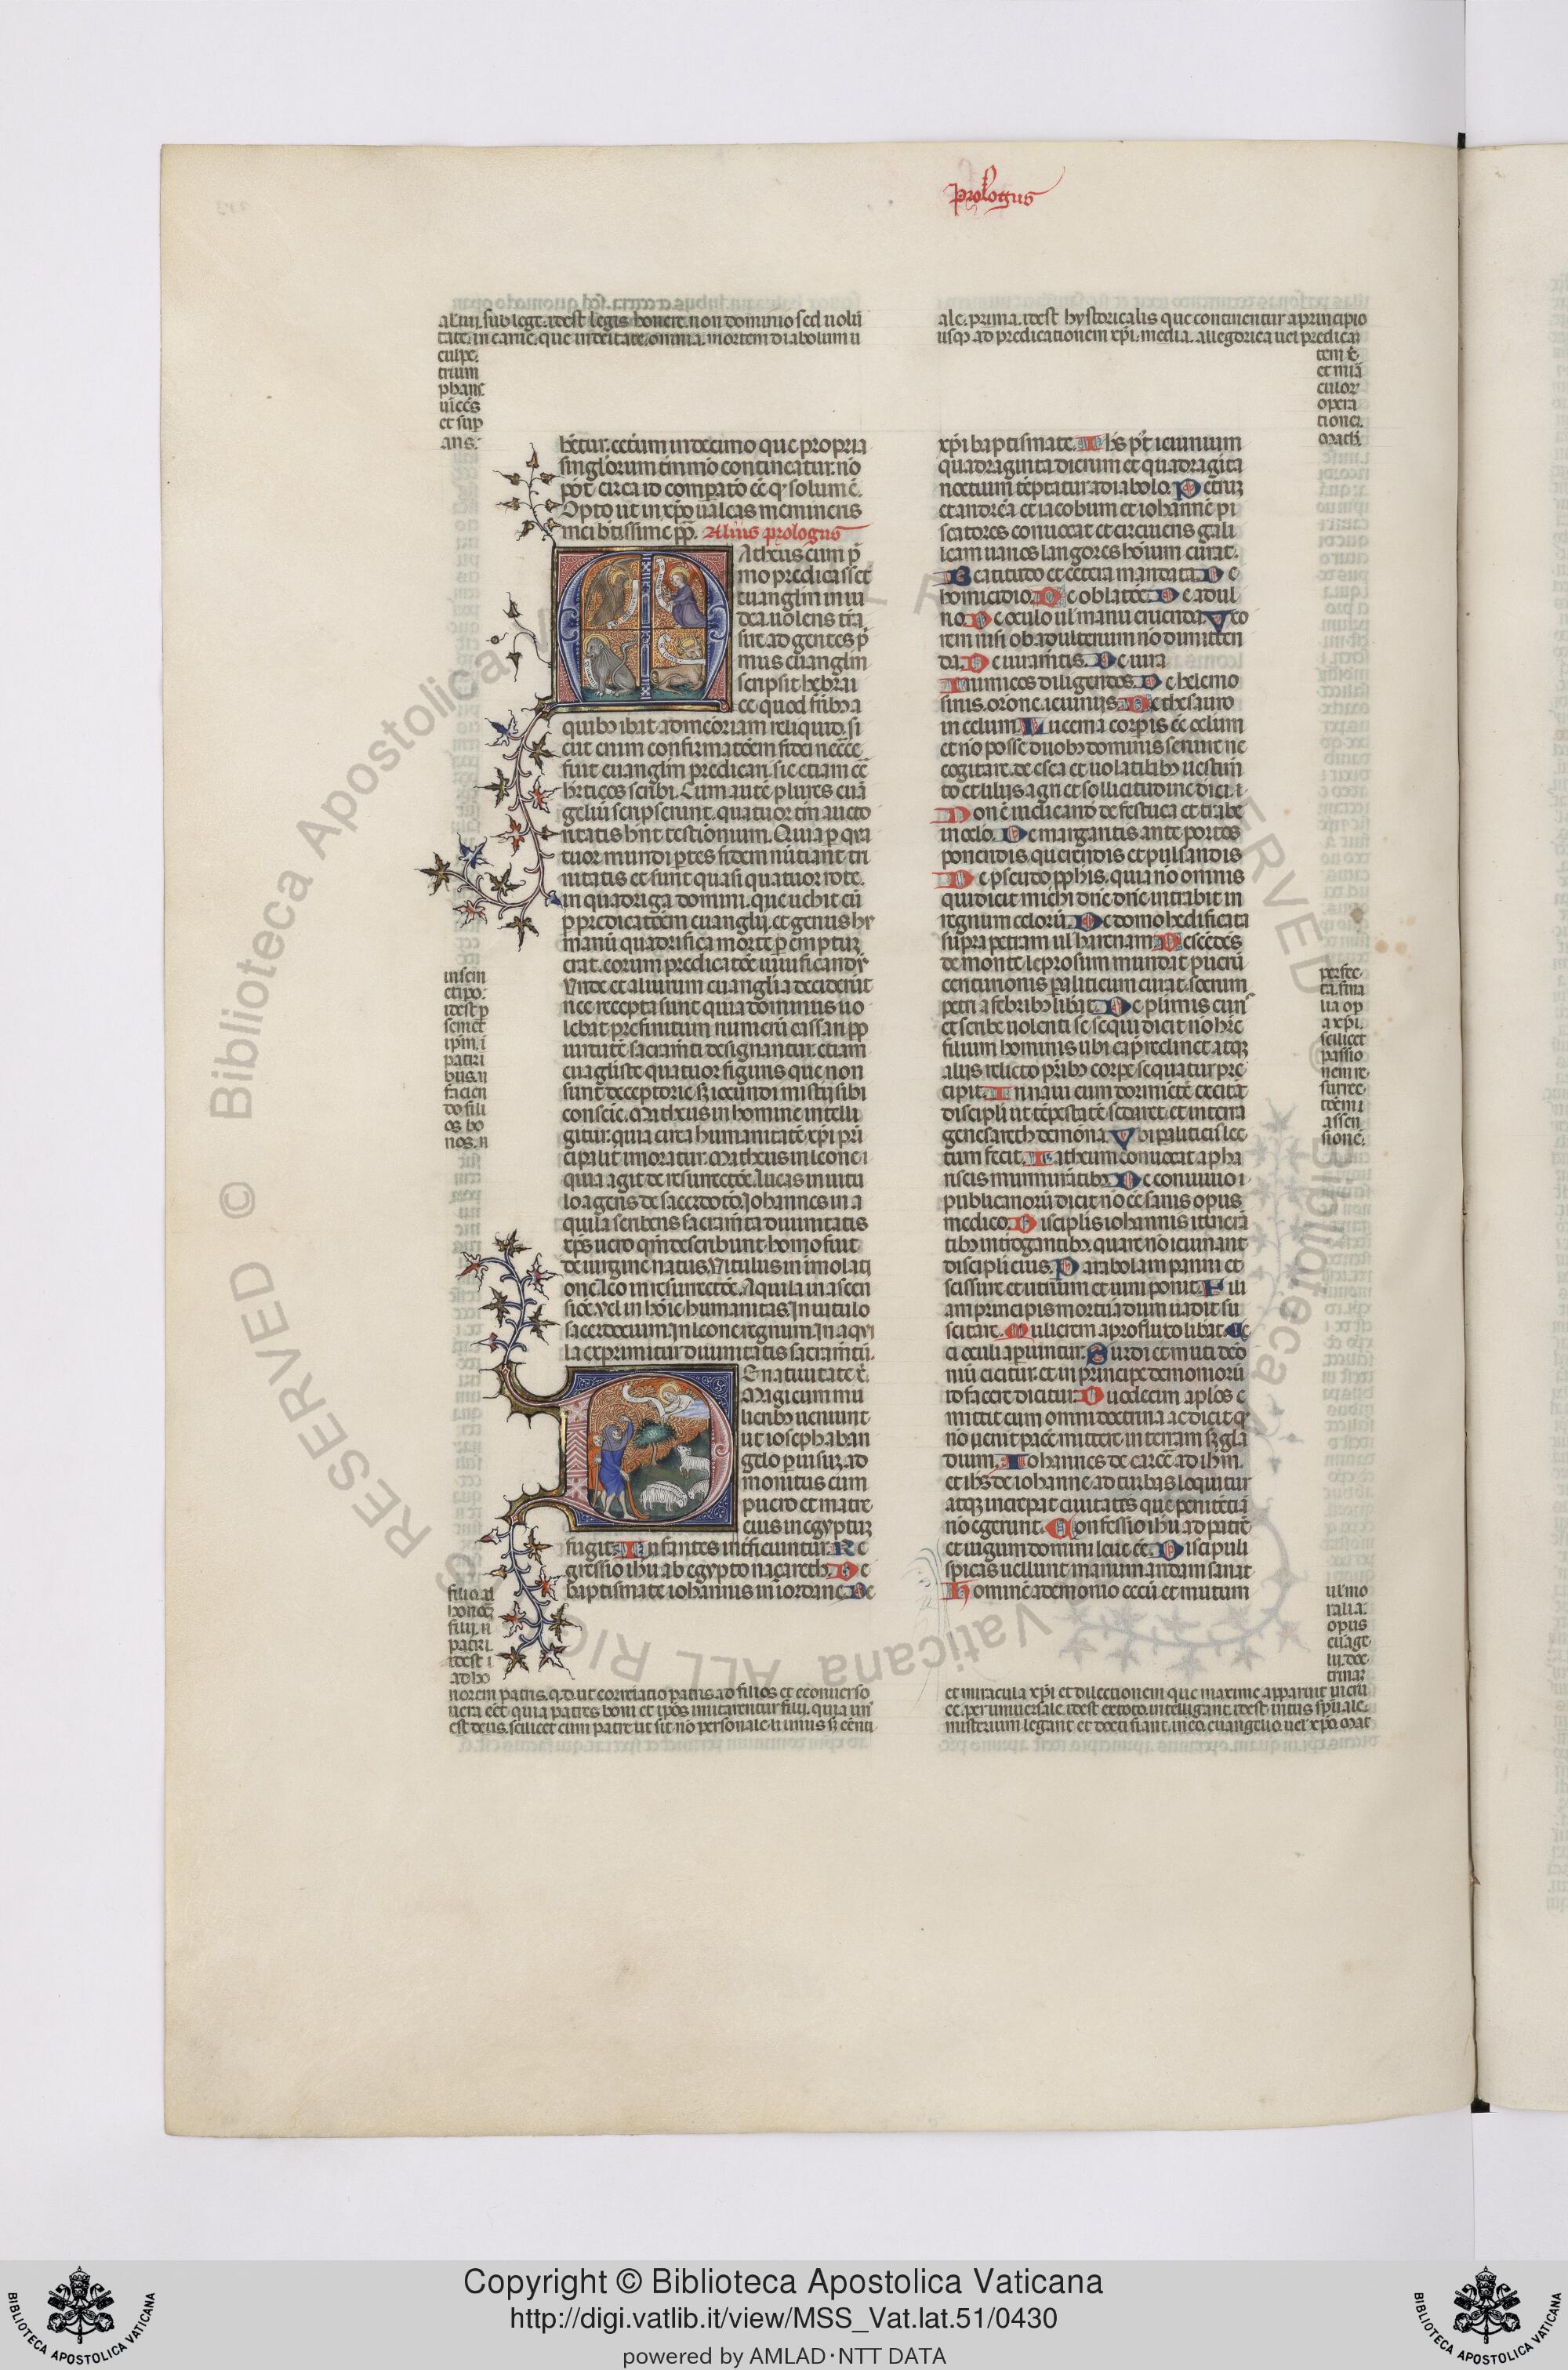 prologus
al iiij. sub lege. idest legis honere. non dominio sed uolū
tate. in carne. que in deitate. omnia. mortem diabolum ū
culpe.
trium
phans
uicēs
et sup
ans.
ale. prima. idest hystoricalis que continentur a principio
usqȝ ad predicationem xp̄i. media. allegorica uel predicac̄
tem ē.
et mirā
culoꝝ
opera
tione.
Math.
bētur. cetum in decimo que propria
singlorum tīmmō contineatur. nō
pōt. circa id compatō eē qd solum ē.
Opto ut in xp̄o ualeas memineris
mei btissime pp̄. Alius prologus
Matheus cum p̄
mo predicasset
euanglm in iu
dea. uolens trā
sire ad gentes p̄
mus euanglm
scripsit hebrai
ce. quod frībȝ a
quibȝ ibat ad memoriam reliquid. si
cut enim confirmatōem fidei necē
fuit euanglm predicari. sic etiam cē
hrticos scribi. Cum autē plures euā
geliū scripserunt. quatuor tm̄ aucto
ritatis hnt testionium. Quia p qua
tuor mundi ptes fidem nūtiant tri
nitatis et sunt quasi quatuor rote.
in quadriga domini. que uehit eū
p predicatōem euanglij. et genus hu
manū quadrifica morte peremptuȝ
erat. eorum predicatōe uiuificandū
Vnde et aliorum euanglia deciderūt
nec recepta sunt quia dominus no
lebat prefinitum numerū cassari pp
uirtutē sacramti. designantur etiam
euagliste quatuor figuris que non
sunt deceptorie. sȝ iocundi mistij sibi
conscie. Matheus in homine intelli
gitur. quia circa humanitatē xp̄i prī
cipalit imoratur. Matheus in leone.
quia agit de resurectōe. Lucas in uitu
lo agens de sacerdotō. Iohannes in a
quila scribens sacramta diuinitatis
xp̄s uero quē describunt. homo fuit
de uirgine natus. Vitulus in imolati
one. Leo in resurrectōe. Aquila in ascen
siōe. Vel in hōie humanitas. In uitulo
sacerdocium. In leone regnum. In aqui
la exprimitur diuinitatis sacramtū.
De natiuitate ē.
Magi cum mu
neribȝ ueniunt
ut ioseph ab an
gelo p uisuȝ ad
monitus cum
puero et matre
eius in egyptuȝ
fugit. Infantes intficiuntur. Re
gressio ihu ab egypto nazareth. De
baptismate iohannis in iordane. De
xp̄i baptismate. Ihs p̄t ieiunium
quadraginta dierum et quadragīta
noctium tēptatur a diabolo. Petruȝ
et andreā et iacobum et iohannē pi
scatores conuocat et circuiens gali
leam uarios langores hōium curat.
Beatitudo et cetera mandata. De
homicidio. De oblatōe. De adul
tio. De oculo ul manu eruenda. Vxo
rem nisi ob adulterium nō dimitten
dā. De iuramtis. De iuīa
Inimicos diligendos. De helemo
sinis. orōne. ieiunijs. De thesauro
in celum. Lucerna corpis ēē oclum
et nō posse duobȝ dominis seruire ne
cogitare. de esca et uolatilibȝ uestim̄
to et lilijs agri et sollicitudine diei.
Non ē iudicandū de festuca et trabe
in oclo. De margaritis ante porcos
ponendis. querendis et pulsandis
De pseudo pphis. quia nō omnis
qui dicit michi dn̄e dn̄e intrabit in
regnum celorū. De domo hedificata
supra petram ul harenam. Descēdēs
de monte leprosum mundat puerū
centurionis paliticum curat. socrum
petri a febribȝ libat. De plimis curīs
et scribe uolenti se sequi dicit nō hr̄e
filium hominis ubi cap reclinet atqȝ
alijs relicto prībȝ corpe sequatur pre
cipit. In naui cum dormientē excitāt
discipli ut tēpestatē sedaret. et in terra
genesareth demonia. Vbi paliticus lec
tum fecit. Matheum conuocat a pha
riseis murmurātibȝ. De conuiuio i
publicanorū dicit nō ēē sanis opus
medico. Disciplis iohannis itinerā
tibȝ introgantibȝ. quare nō ieiunant
discipli eius. Parabolam panni et
scissure et utrium et uini ponit. Fili
am principis mortuā dum uadit su
scitare. Mulierem a profluuio libat. Ce
ci oculi apiuntur. Surdi et muti deō
niū eicitur. et in principe demoniorū
id facere dicitur. Duodecim aplōs e
mittit cum omni doctrina ac dicit qd
nō uenit pacē mittere in terram sȝ gla
dium. Iohannes de carcē ad ihm.
et ihs de iohanne ad turbas loquitur
atqȝ increpat ciuitates que penitētiā
nō egerunt. Confessio ihu ad patrē
et iugum domini leue ēē. Discipuli
spicas uellunt manum aridam sanat
Hominē a demonio cecū et mutum
in sem
etipo.
idest p
semet
ipm. i
patri
bus. n
facien
do fili
os bo
nos. n
perfec
ta. fina
lia op
a xp̄i.
scilicet
passio
nem re
surrec
tōem i
ascen
sionē.
filio. al
honorē
filij. n
patri.
idest i
ad ho
norem patris. q. d. ut correlatio patris ad filios et econuerso
uera ēēt. quia patres boni et ip̄os imitarentur filij. quia un
est deus. scilicet cum patre ut sit nō personale li unus sȝ cēnti
ul mo
ralia.
opus
euāge
lij. doc
trinaȝ
et miracula xp̄i et dilectionem que maxime apparuit in cru
ce. per uniuersale. idest ex toto. intelligant. idest intus spūale.
misterium legant et docti fiant. in eo. euangelio. uel xp̄o. Mat
Copyright © Biblioteca Apostolica Vaticana
http://digi.vatlib.it/view/MSS_Vat.lat.51/0430
powered by AMLAD·NTT DATA
BIBLIOTECA APOSTOLICA VATICANA
BIBLIOTECA APOSTOLICA VATICANA